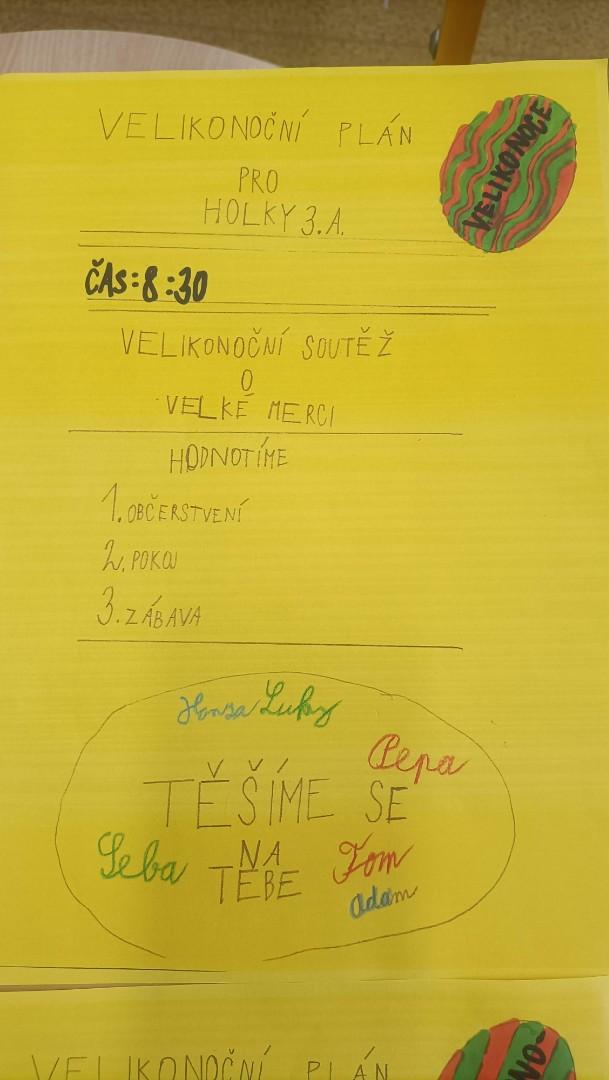 VELIKONOČNÍ PLÁN
PRO
HOLKY 3.A.
VELIKONOCE
ČAS:8:30
VELIKONOČNÍ SOUTĚŽ
O
VELKÉ MERCI
HODNOTÍME
1. OBČERSTVENÍ
2. POKOJ
3. ZÁBAVA
Honza Luky
Pepa
TĚŠÍME SE
NA
TEBE
Seba
Tom
Adam
VELIKONOČNÍ PLÁN
NO-